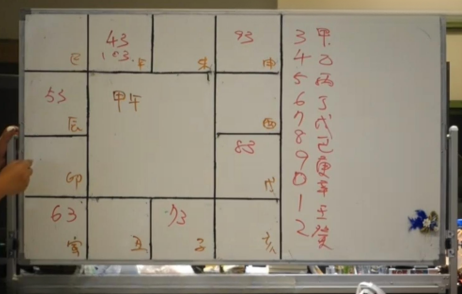 巳
43
103.
午
未
93
申
55
辰
甲午
酉
卯
83
戌
63
寅
丑
73
子
亥
3 甲
4 乙
5 丙
6 丁
7 戊
8 己
9 庚
0 辛
1 壬
2 癸